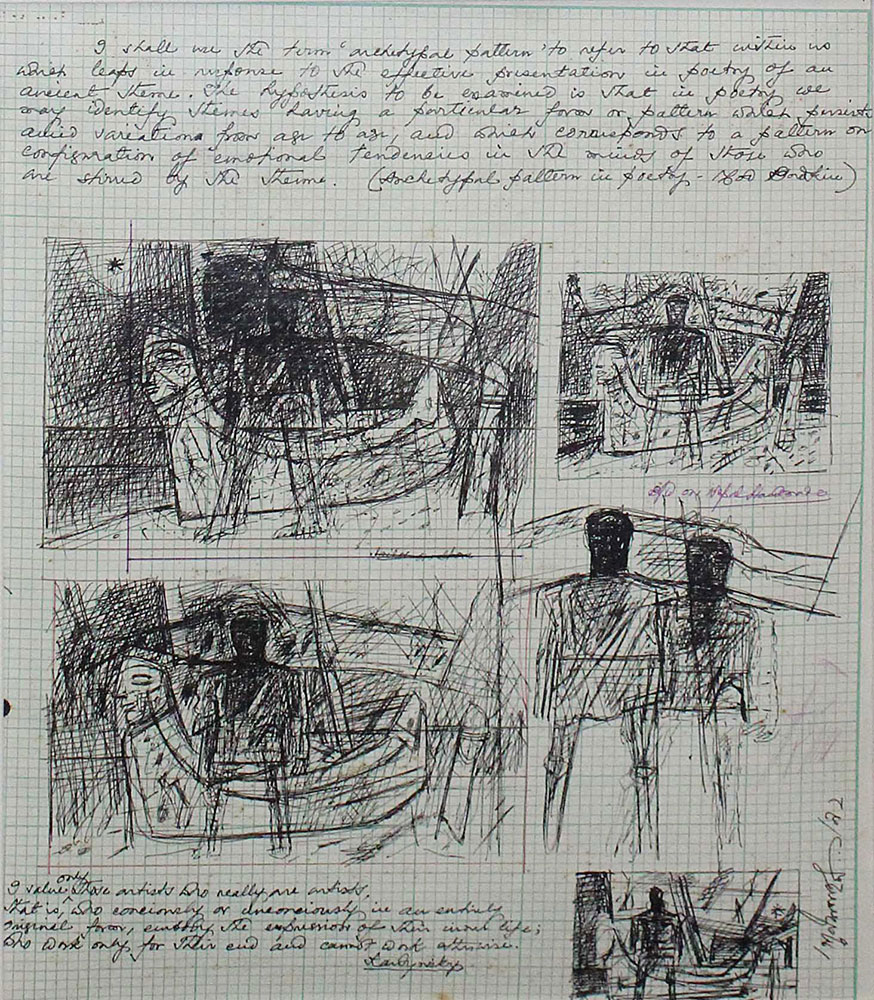 I shall use the term 'archetypal pattern' to refer to that within us
which leaps in response to the effective presentation in poetry of an
ancient theme. The hypothesis to be examined is that in poetry we
may identify themes having a particular form or pattern which persists
amid variations from age to age, and which corresponds to a pattern or
configuration of emotional tendencies in the minds of those who
are stirred by the theme. (Archetypal pattern in poetry -
only
I value those artists who really are artists,
that is, who conciously or unconciously in an entirely
original form, embody the expression of their inner life;
who work only for their end and cannot work otherwise.
Kandynsky
/87